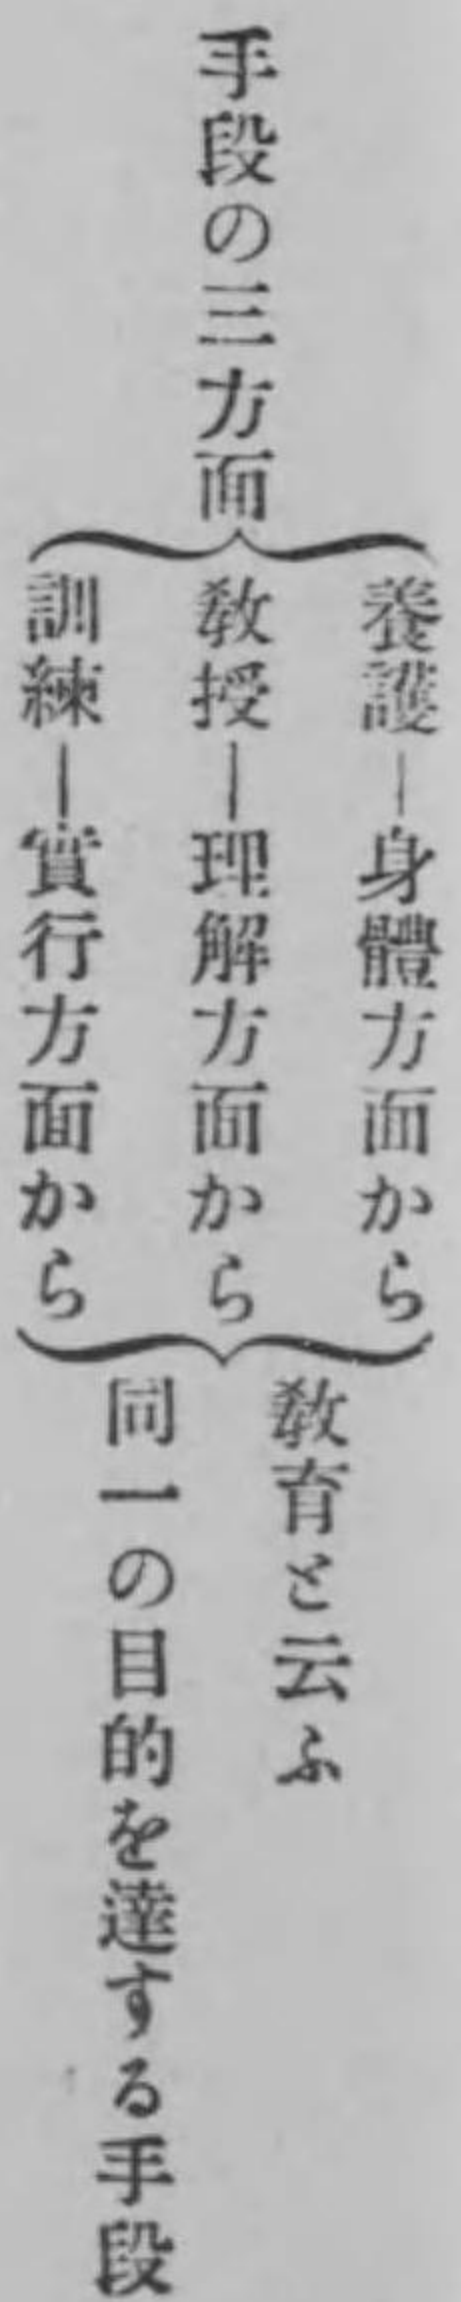 手段の三方面
養護―身體方面から
敎授―理解方面から
訓練―實行方面から
敎育と云ふ
同一の目的を達する手段